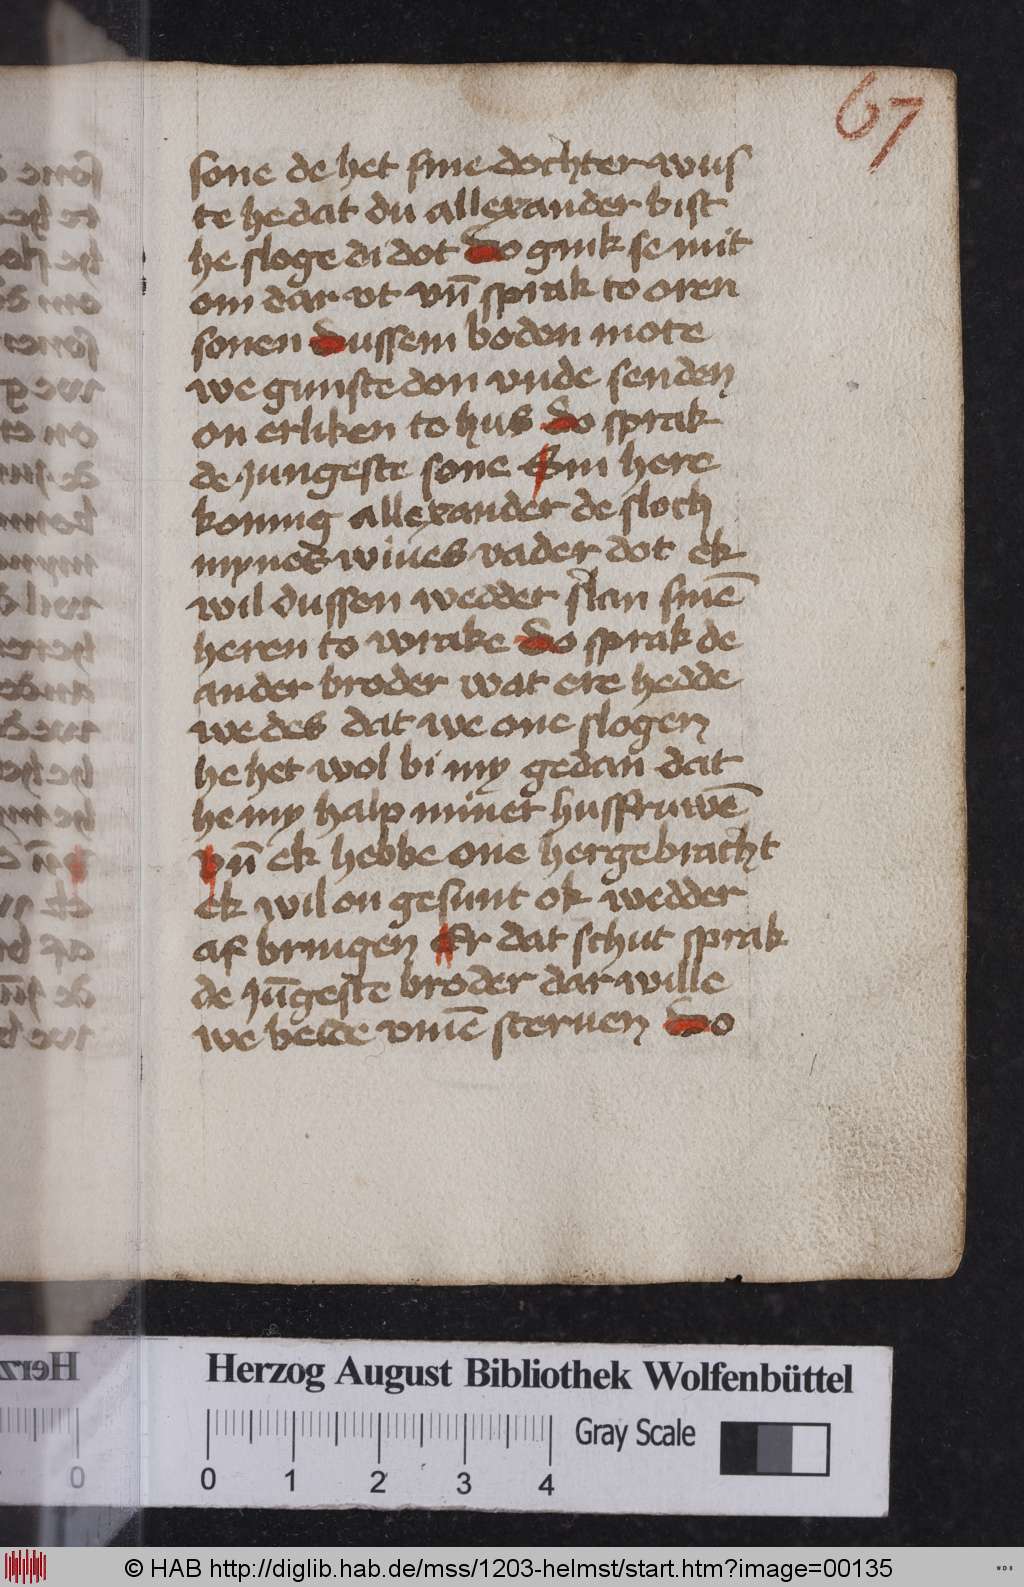 67
sone de het sine dochter wus
te he dat du allexander bist
he sloge di dot do gink se mit
om dar vt vn̄ sprak to oren
sonen dussem boden mote
we gunste don vnde senden
on erliken to hus do sprak
de jungeste sone Sin here
koning allexander de sloch
mynes wiues vader dot ek
wil dussen wedder slan sinē
heren to wrake do sprak de
ander broder wat ere hedde
we des dat we one slogen
he het wol bi my gedan dat
he my halp miner husfruwē
vn̄ ek hebbe one hergebracht
ek wil on gesunt ok wedder
af bringen Er dat schut sprak
de jūgeste broder dar wille
we beide vmē steruen do
Herzog August Bibliothek Wolfenbüttel
Gray Scale
0 1 2 3 4
© HAB http://diglib.hab.de/mss/1203-helmst/start.htm?image=00135